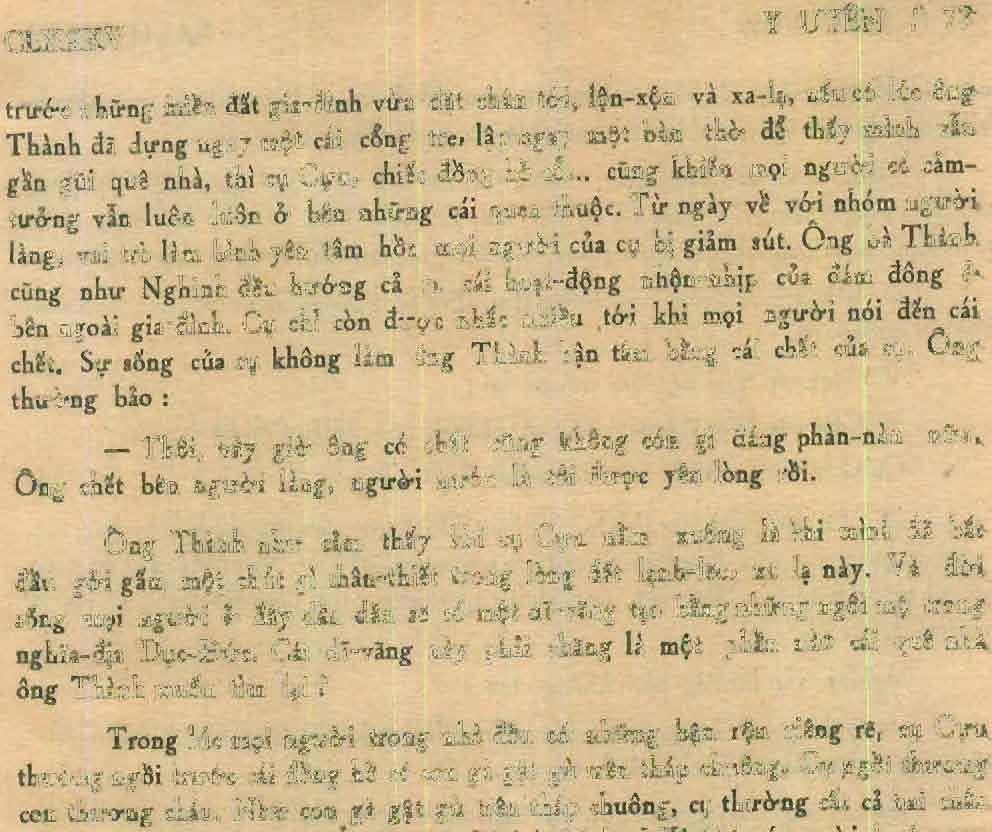 Y UYÊN
trước những miền đất gia-đình vừa đặt chân tới, lộn-xộn và xa-lạ, nếu có lúc ông
Thành đã dựng ngay một cái cổng tre, lập ngay một bàn thờ để thấy mình vẫn
gần gũi quê nhà, thì cụ Cựu, chiếc đồng hồ cổ... cũng khiến mọi người có cảm-
tưởng vẫn luôn luôn ở bên những cái quen thuộc. Từ ngày về với nhóm người
làng, vai trò làm bình yên tâm hồn mọi người của cụ bị giảm sút. Ông bà Thành
cũng như Nghinh đều hướng cả cái hoạt-động nhộn-nhịp của đám đông ở
bên ngoài gia-đình. Cụ chỉ còn được nhắc nhiều tới khi mọi người nói đến cái
chết. Sự sống của cụ không làm ông Thành bận tâm bằng cái chết của cụ. Ông
thường bảo :
— Thôi, bây giờ ông có chết cũng không còn gì đáng phàn-nàn nữa.
Ông chết bên người làng, người nước là tôi được yên lòng rồi.
Ông Thành như cảm thấy khi cụ Cựu nằm xuống là khi mình đã bắt
đầu gởi gấm một chút gì thân-thiết trong lòng đất lạnh-lẽo, xa lạ này. Và đời
sống mọi người ở đây dần dần sẽ có một dĩ-vãng tạo bằng những ngôi mộ trong
nghĩa-địa Dục-Đức. Cái dĩ-vãng này phải chăng là một phần nào cái quê nhà
ông Thành muốn tìm lại ?
Trong lúc mọi người trong nhà đều có những bận rộn riêng rẽ, cụ Cựu
thường ngồi trước cái đồng hồ có con gà gật gù trên tháp chuông. Cụ ngồi thương
con thương cháu. Như con gà gật gù trên tháp chuông, cụ thường cả hai